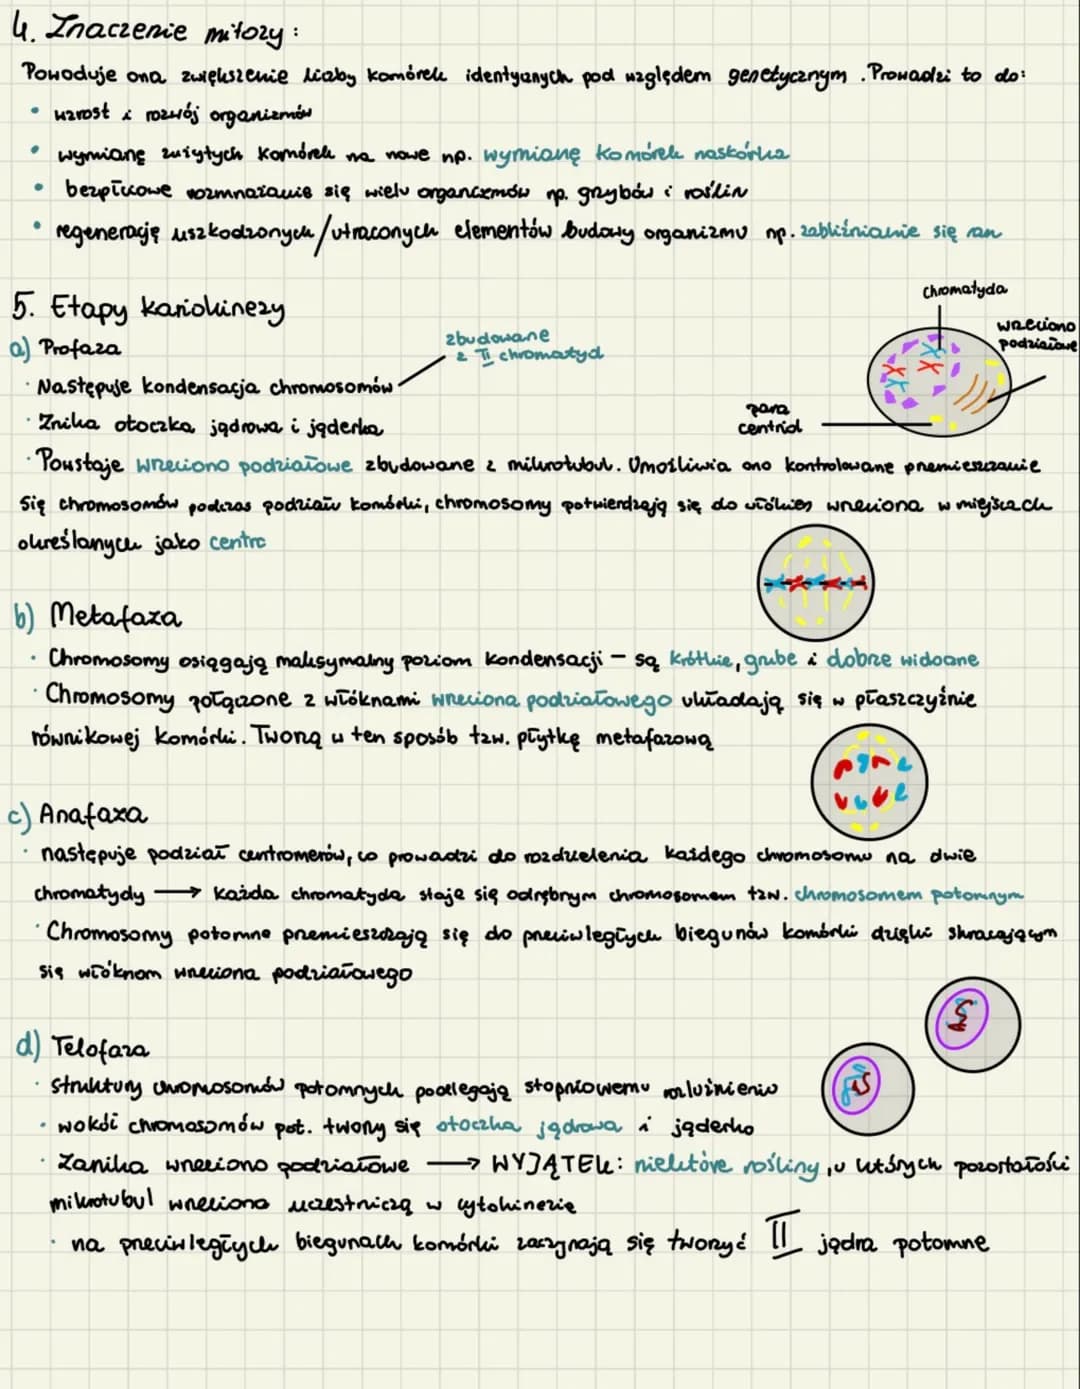 4. Znaczenie mitozy:
Powoduje ona zwiększenie liczby komórek identycznych pod względem genetycznym. Prowadzi to do:
• wzrost i rozwój organizmów
• wymianę zużytych komórek na nowe np. wymianę komórek naskórka
• bezpłciowe rozmnażanie się wielu organizmów np. grzybów i roślin
• regenerację uszkodzonych/utraconych elementów budowy organizmu np. zabliźnianie się ran
5. Etapy kariokinezy
chromatyda
wrzeciono podziałowe
a) Profaza
zbudowane z II chromatyd
· Następuje kondensacja chromosomów
para centriol
· Znika otoczka jądrowa i jąderka
· Powstaje wrzeciono podziałowe zbudowane z mikrotubul. Umożliwia ono kontrolowane przemieszczanie
się chromosomów podczas podziału komórki, chromosomy potwierdzają się do włókien wrzeciona w miejscach
określanych jako centro
b) Metafaza
· Chromosomy osiągają maksymalny poziom kondensacji – są krótkie, grube i dobrze widoczne
· Chromosomy połączone z włóknami wrzeciona podziałowego układają się w płaszczyźnie
równikowej komórki. Tworzą w ten sposób tzw. płytkę metafazową
c) Anafaza
· następuje podział centromerów, co prowadzi do rozdzielenia każdego chromosomu na dwie
chromatydy → każda chromatyda staje się odrębnym chromosomem tzw. chromosomem potomnym
· Chromosomy potomne przemieszczają się do przeciwległych biegunów komórki dzięki skracającym
się włóknom wrzeciona podziałowego
d) Telofaza
· struktury chromosomów potomnych podlegają stopniowemu rozluźnieniu
· wokół chromosomów pot. tworzy się otoczka jądrowa i jąderko
· Zanika wrzeciono podziałowe → WYJĄTEK: niektóre rośliny, u których pozostałości
mikrotubul wrzeciona uczestniczą w cytokinezie
· na przeciwległych biegunach komórki zaczynają się tworzyć II jądra potomne